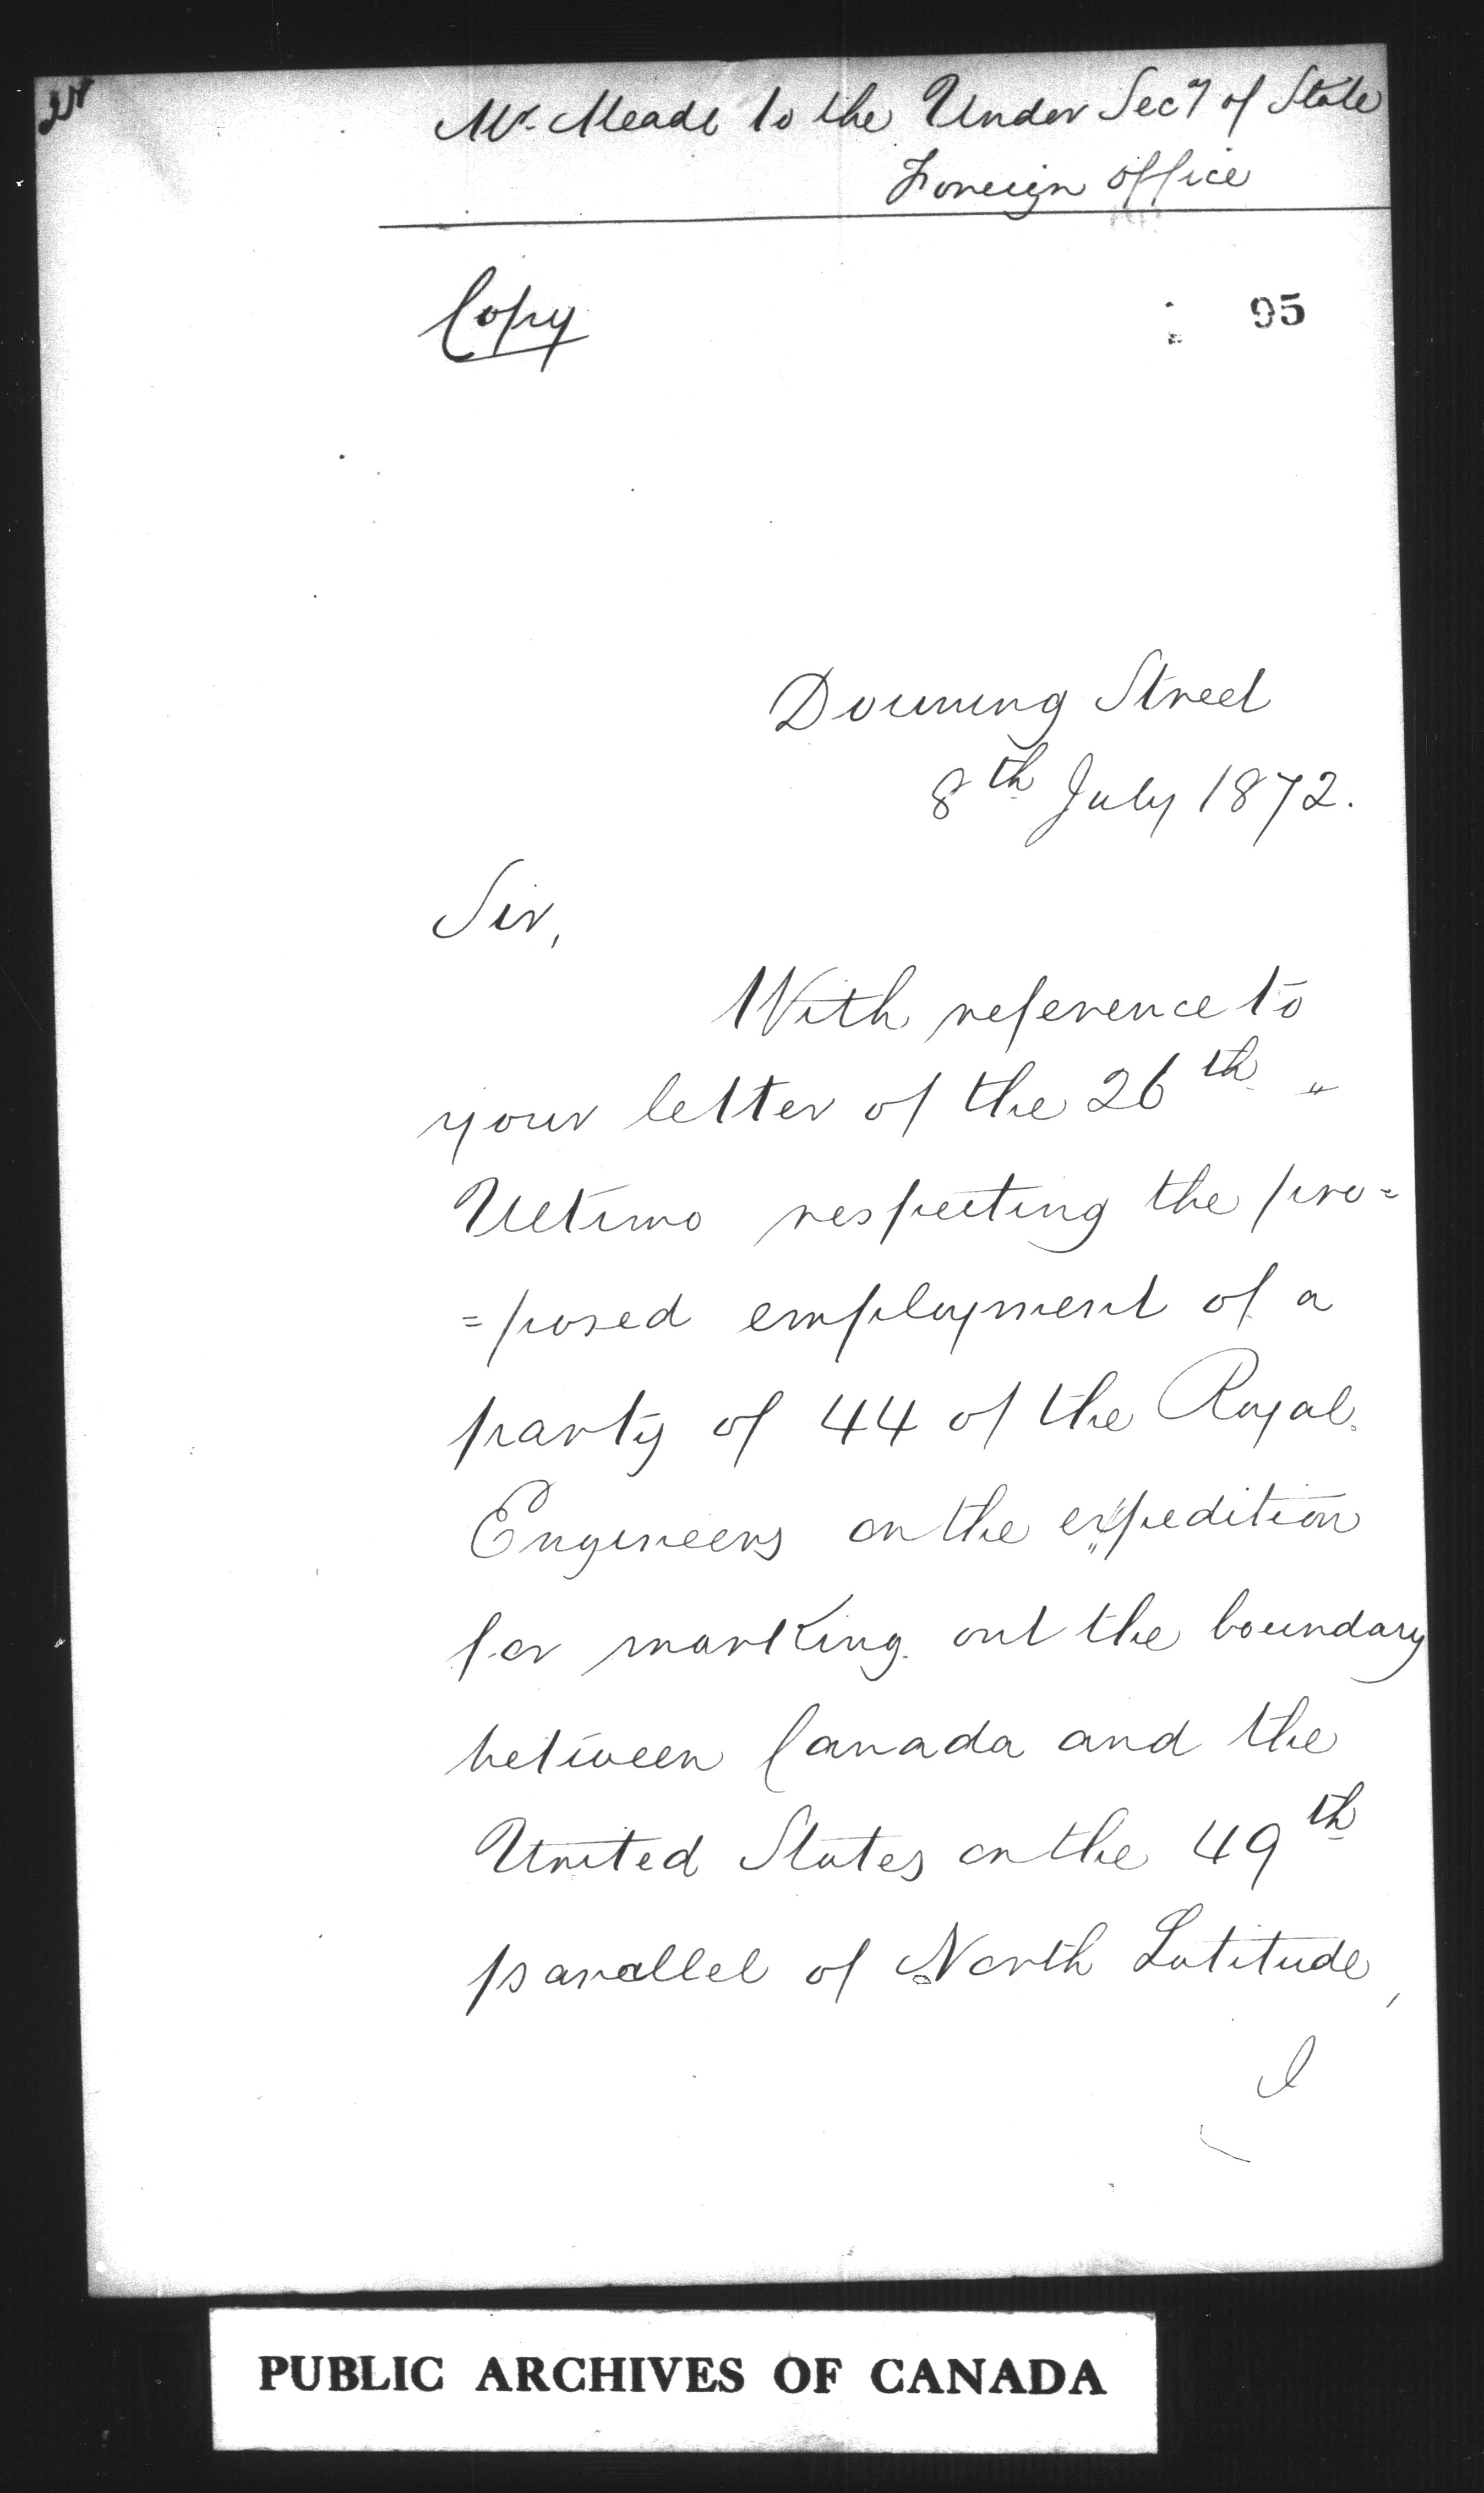 Mr. Meade to the Under Secy of State
Foreign office
Copy
95
Downing Street
8th July 1872.
Sir,
With reference to
your letter of the 26th "
Ultimo respecting the pro=
=posed employment of a
party of 44 of the Royal
Engineers on the expedition
for marking out the boundary
between Canada and the
United States on the 49th
parallel of North Latitude,
I
PUBLIC ARCHIVES OF CANADA